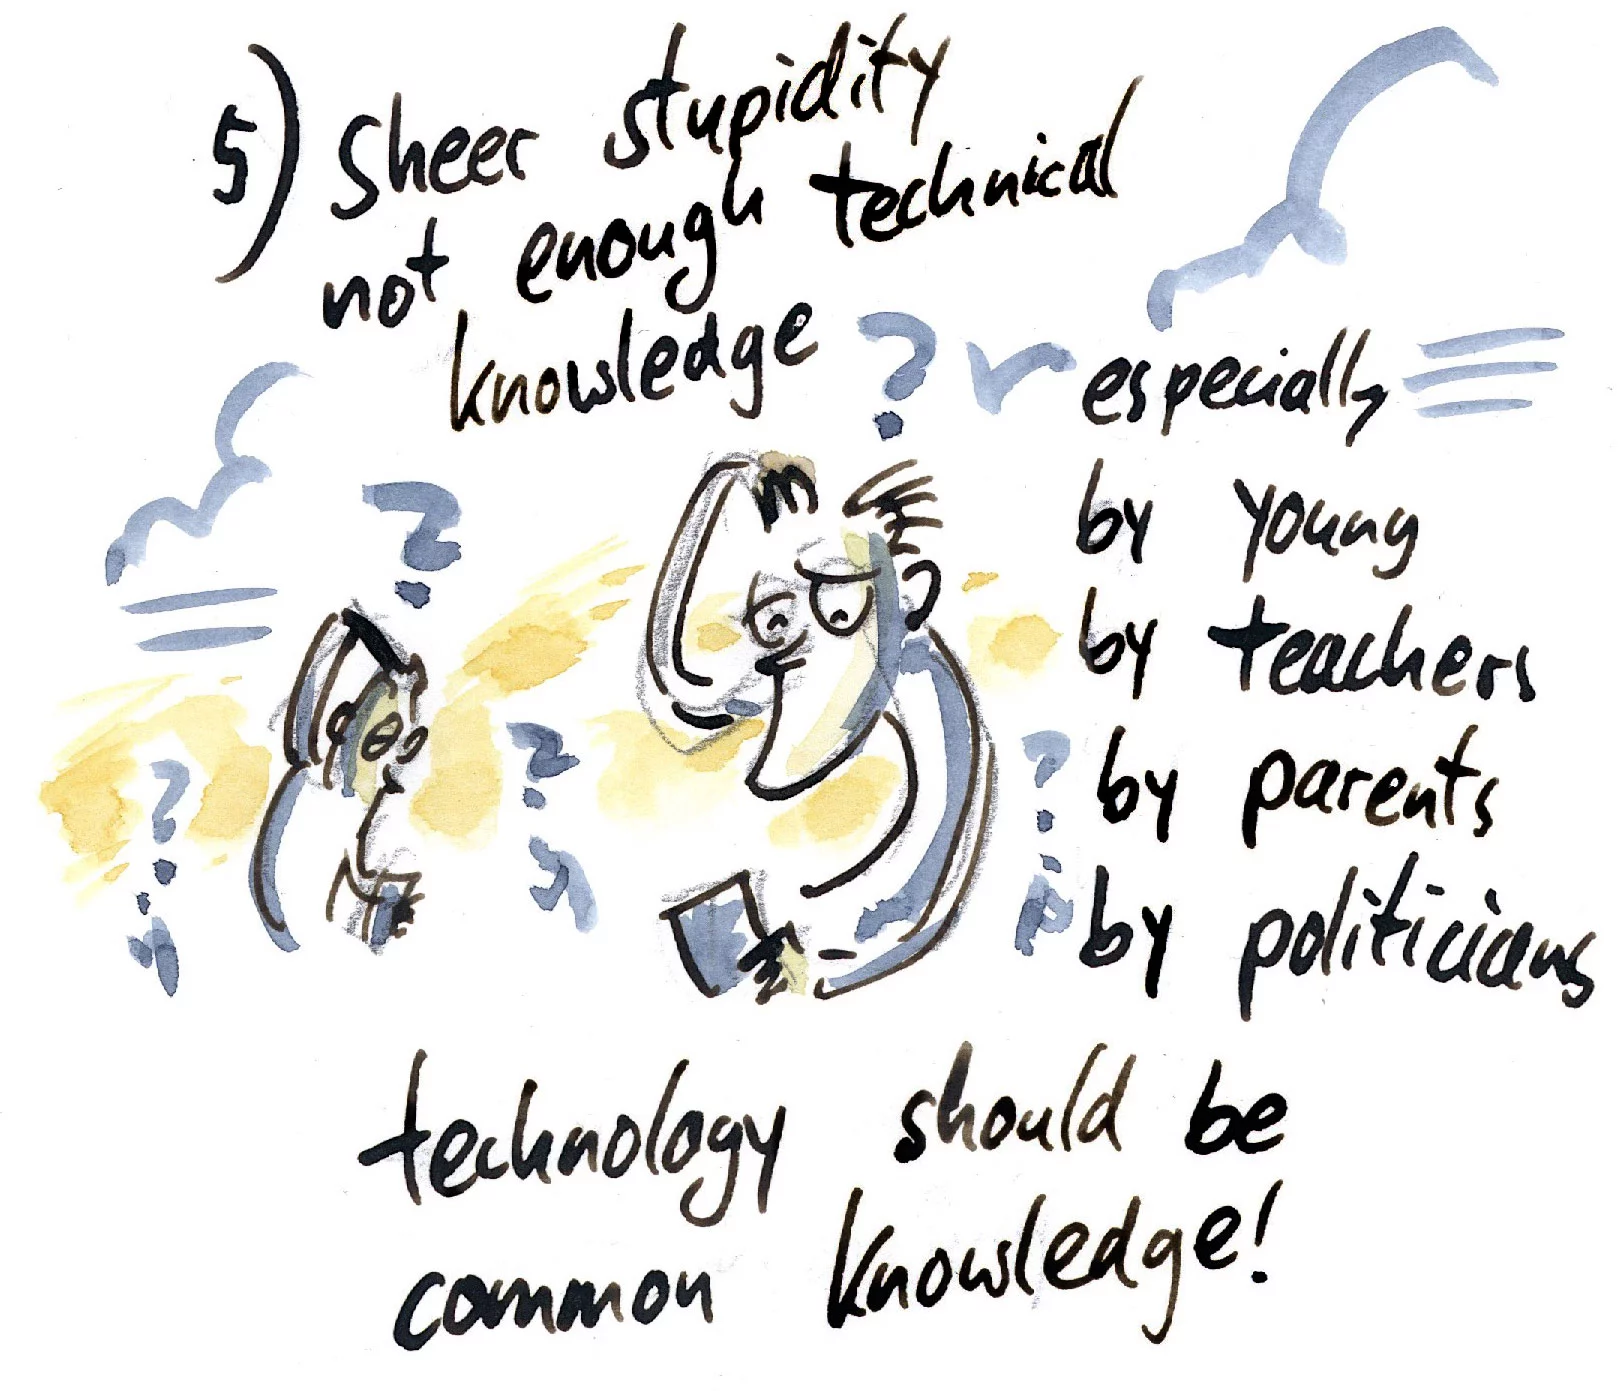 5) sheer stupidity
not enough technical
knowledge
especially
by young
by teachers
by parents
by politicians
technology should be
common knowledge!